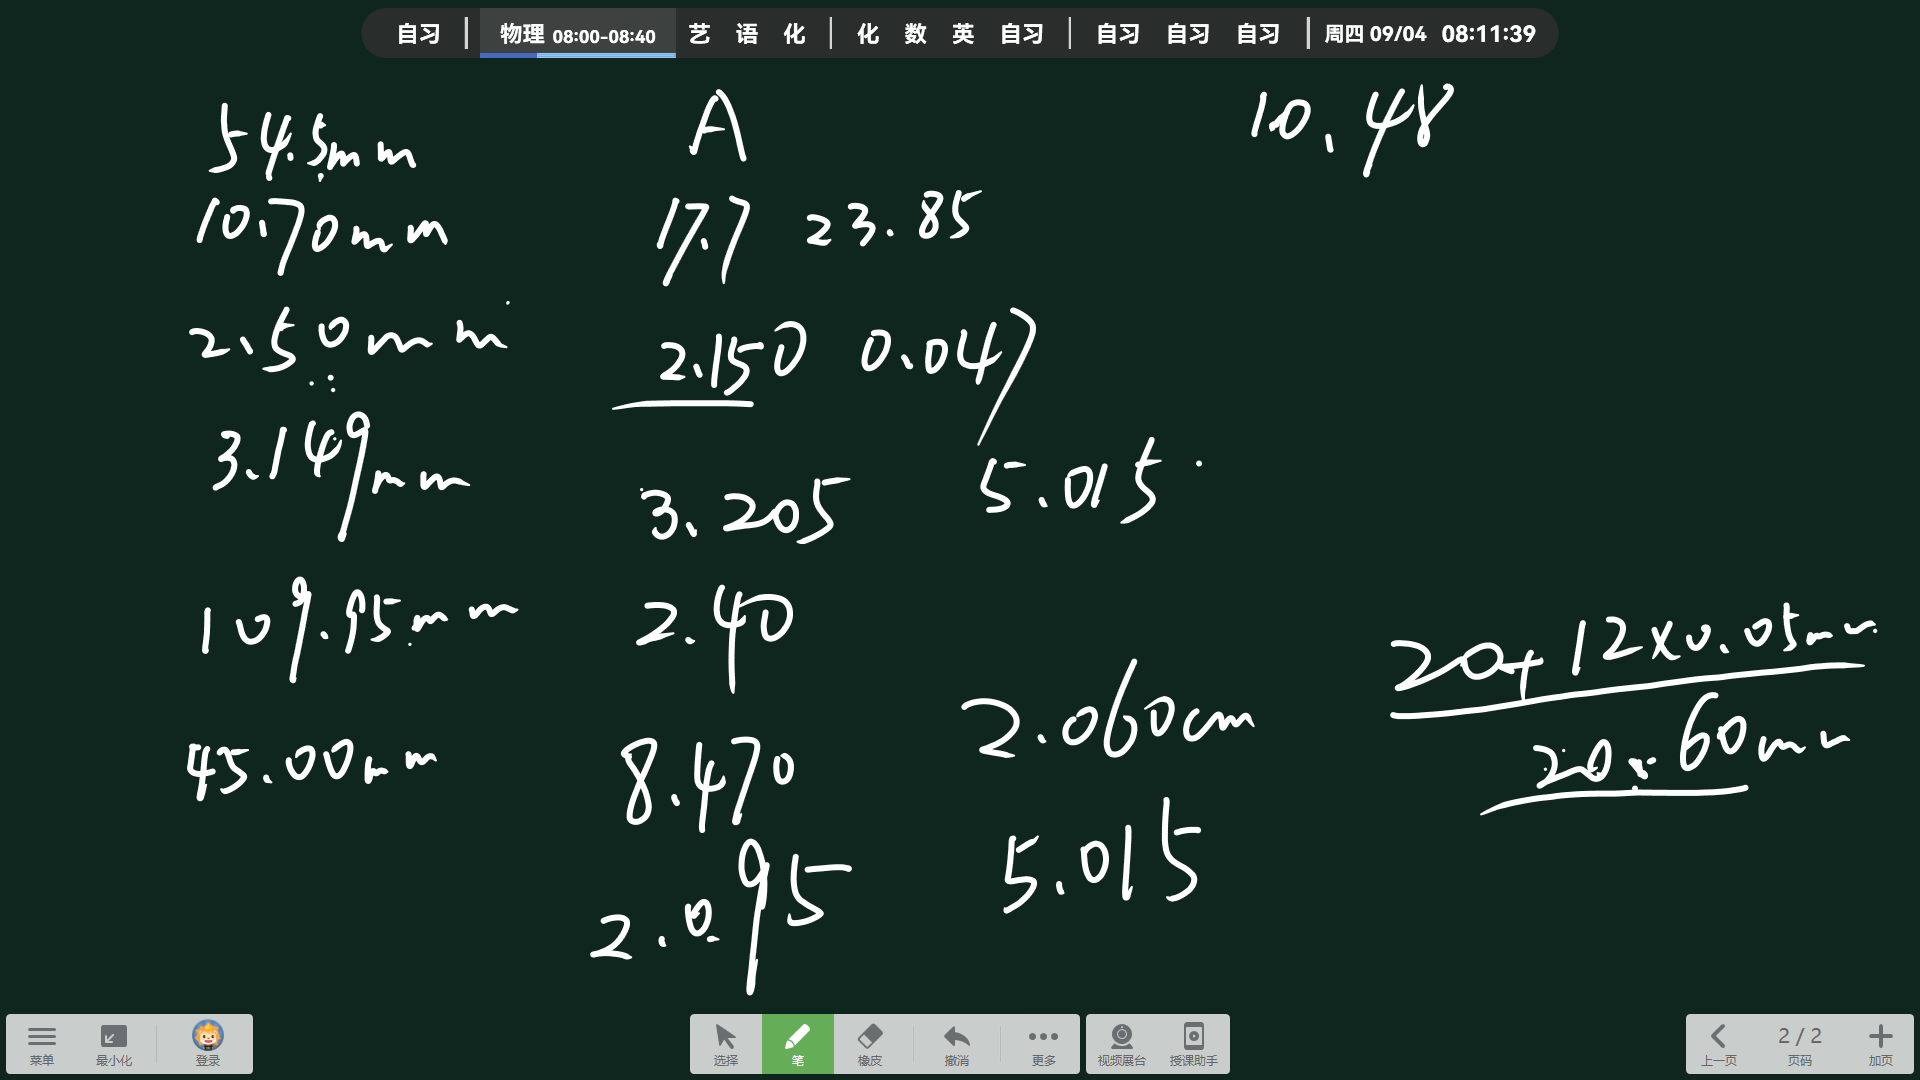 自习 | 物理 08:00-08:40 艺 语 化 | 化 数 英 自习 | 自习 自习 自习 | 周四 09/04 08:11:39
54.5mm
10.70mm
2.50mm
3.149mm
109.95mm
45.00mm
A
17.7 23.85
2.150 0.047
3.205 5.015
2.40
8.470
2.095
2.060cm
5.015
10.48
20+12×0.05mm
20.60mm
菜单 最小化 登录
选择 笔 橡皮 撤消 更多
视频展台 授课助手
上一页 2 / 2 页码 加页